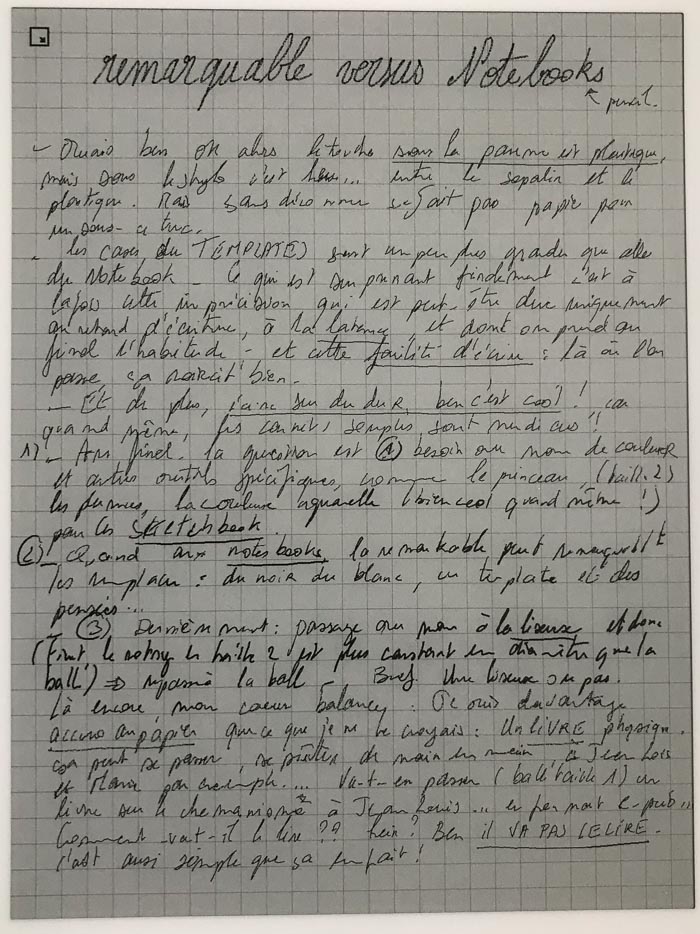 remarquable versus Notebooks
↖ pencil.
- Ouais ben OK alors le touché sous la paume est plastique,
mais sous le stylo c'est ... entre le sopalin et le
plastique. Mais sans déco nne se fait pas papier pour
un sous- ce truc.
- les cases du TEMPLATE) sont un peu plus grandes que celles
du Notebook - Ce qui est surprenant finalement c'est à
la fois cette imprécision qui est peut-être due uniquement
au retard d'écriture, à la latence, et dont on prend au
final l'habitude - et cette facilité d'écrire : là où l'on
passe, ça noircit bien.
- Et de plus, j'aime sur du dur, ben c'est cool ! car
quand même, les carnets souples sont mudicus !
1) - Au final. la question est ① besoin ou non de couleur
et autres outils spécifiques, comme le pinceau, (taille 2)
les plumes, la couleur aquarelle (bien cool quand même !)
pour les sketchbook.
② - Quand aux notesbooks, la remarkable peut remarquablt
les remplacer : du noir du blanc, un template et des
pensées...
- ③ Dernièrement : passage ou non à la liseuse et donc
(Fint le taille 2 est plus constant en diamètre que la
ball) ⇒ repassé à la ball Bref. Une liseuse ou pas.
Là encore, mon coeur balance : Je suis davantage
accro au papier que ce que je ne le croyais : Un LIVRE physique.
ça peut se passer, se prêter de main en main, à Jean Louis
et Marie par exemple... Va-t-en passer (ball taille 1) un
livre sur le chamanisme à Jean Louis... en format e-pub...
Comment va-t-il le lire ?? hein ? Ben il VA PAS LE LIRE.
C'est aussi simple que ça en fait !